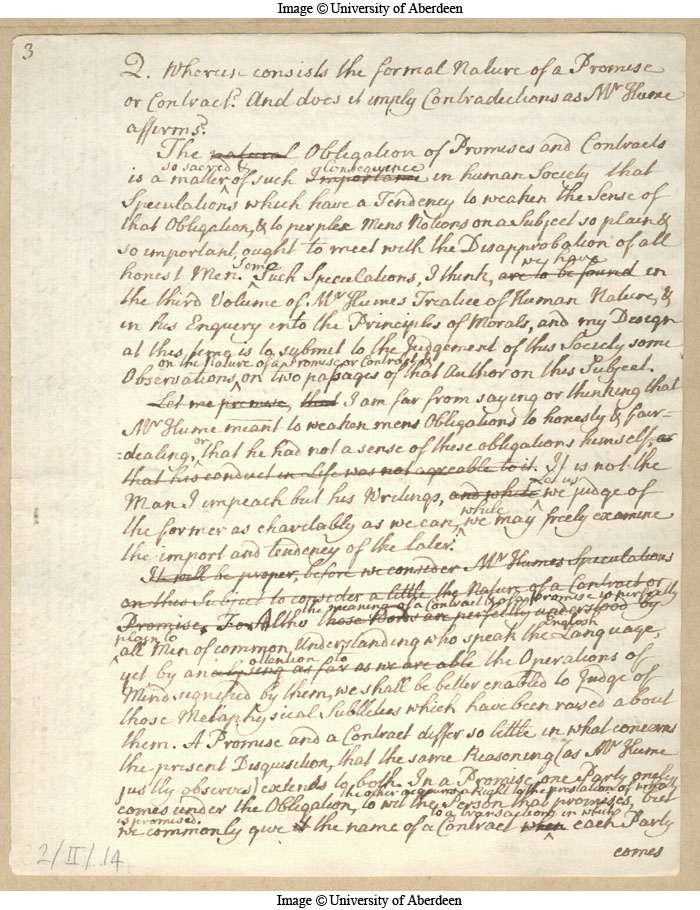 Image © University of Aberdeen
3
2. Wherein consists the formal Nature of a Promise
or Contract? And does it imply Contradictions as Mr Hume
affirms?
The natural Obligation of Promises and Contracts
so sacred & Consequence
is a matter of such importance in human Society that
Speculations which have a Tendency to weaken the Sense of
that Obligation, & to perplex Mens Notions on a Subject so plain &
so important, ought to meet with the Disapprobation of all
Some we have
honest Men. Such Speculations, I think, are to be found in
the third Volume of Mr Humes Treatice of Human Nature, &
in his Enquery into the Principles of Morals, and my Design
at this time is to submit to the Judgement of this Society some
on the nature of a promise or Contract &
Observations, on two passages of that Author on this Subject.
Let me premise, that I am far from saying or thinking that
Mr Hume meant to weaken mens Obligations to honesty & fair-
or
=dealing, that he had not a sense of these obligations himself, or
that his conduct in Life was not agreable to it. It is not the
Let us
Man I impeach but his Writings, and while we judge of
while
the former as charitably as we can, we may freely examine
the import and tendency of the later.
It will be proper, before we consider Mr Humes Speculations
on this Subject to consider a little the Nature of a Contract or
the meaning of a Contract & of a promise is perfectly
Promise. For Altho those Words are perfectly understood by
plain to English
all Men of common Understanding who speak the Language,
attention to
yet by analysing as far as we are able the Operations of
Mind signified by them, we shall be better enabled to Judge of
those Metaphysical Subtleties which have been raised about
them. A Promise and a Contract differ so little in what concerns
the present Disquisition, that the same Reasoning (as Mr Hume
justly observes) extends to both. In a Promise one Party onely
the other acquires a Right to the prestation of what
comes under the Obligation, to wit the Person that promises, but
is promised. to a transaction in which
we commonly give it the name of a Contract when each Party
comes
2/II/14
Image © University of Aberdeen